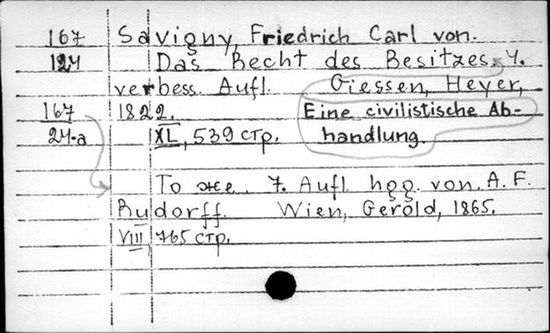 167 Savigny, Friedrich Carl von.
124 Das Recht des Besitzes. 4.
verbess. Aufl. Giessen, Heyer,
167 1822. Eine civilistische Ab-
24.a XL, 539 стр. handlung.
То же. 7. Aufl. hgg. von. A. F.
Rudorff. Wien, Gerold, 1865.
VIII 765 стр.